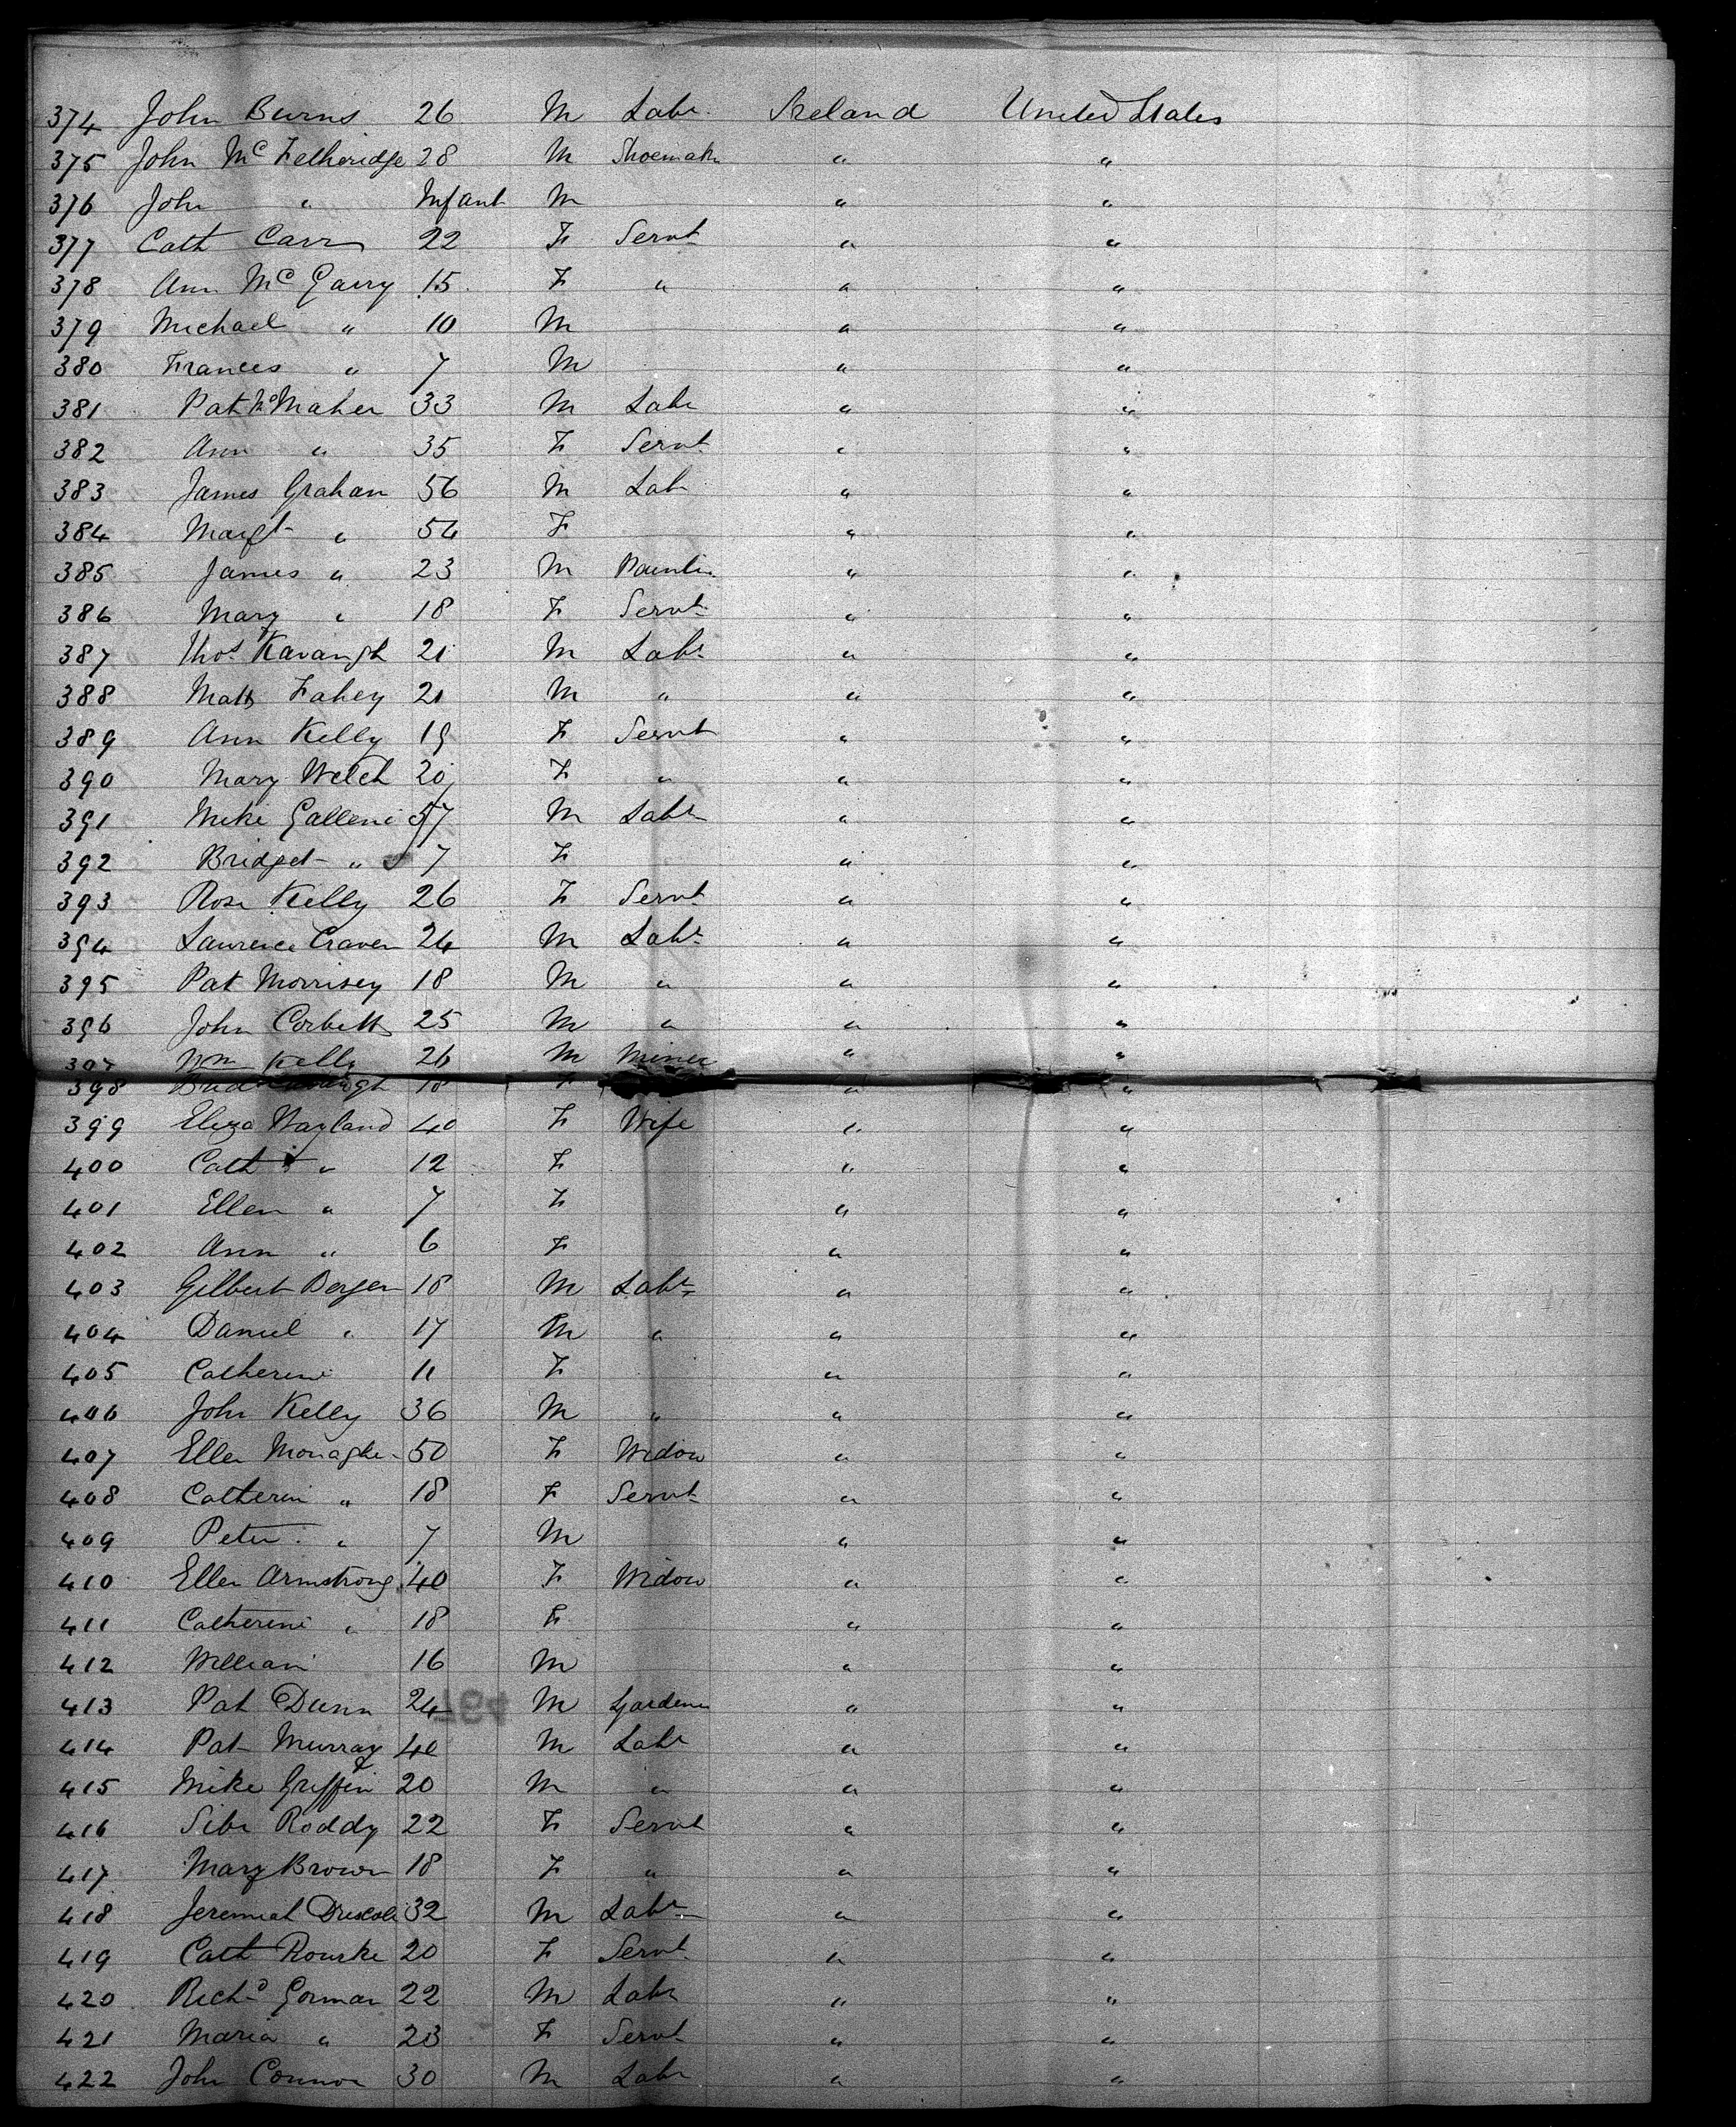 374 John Burns 26 M Labr. Ireland United States
375 John McFetheridge 28 M Shoemakr " "
376 John " Infant M " "
377 Cath Carr 22 F Servt " "
378 Ann McGarry 15 F " " "
379 Michael " 10 M " "
380 Frances " 7 M " "
381 Pat McMaher 33 M Labr " "
382 Ann " 35 F Servt " "
383 James Graham 56 M Labr " "
384 Margt " 54 F " "
385 James " 23 M Painter " "
386 Mary " 18 F Servt " "
387 Thos Kavangh 21 M Labr " "
388 Matt Fahey 21 M " " "
389 Ann Kelly 19 F Servt " "
390 Mary Welch 20 F " " "
391 Mike 57 M Labr " "
392 Bridget " 7 F " "
393 Rose Kelly 26 F Servt " "
394 Laurence Craven 24 M Labr " "
395 Pat Morrisey 18 M " " "
396 John Corbett 25 M " " "
397 Wm Kelly 26 M Miner " "
398 18 F " "
399 Eliza Wayland 40 F Wife " "
400 Cath " 12 F " "
401 Ellen " 7 F " "
402 Ann " 6 F " "
403 Gilbert Bergen 18 M Labr " "
404 Daniel " 17 M " " "
405 Catherine 11 F " "
406 John Kelly 36 M " " "
407 Ellen 50 F Widow " "
408 Catherin " 18 F Servt " "
409 Peter " 7 M " "
410 Ellen Armstrong 40 F Widow " "
411 Catherine " 18 F " "
412 William 16 M " "
413 Pat Dunn 24 M Gardener " "
414 Pat Murray 40 M Labr " "
415 Mike Griffin 20 M " " "
416 Roddy 22 F Servt " "
417 Mary Brown 18 F " " "
418 Jeremiah Driscoll 32 M Labr " "
419 Cath Rourke 20 F Servt " "
420 Richd Gorman 22 M Labr " "
421 Maria " 23 F Servt " "
422 John Connor 30 M Labr " "